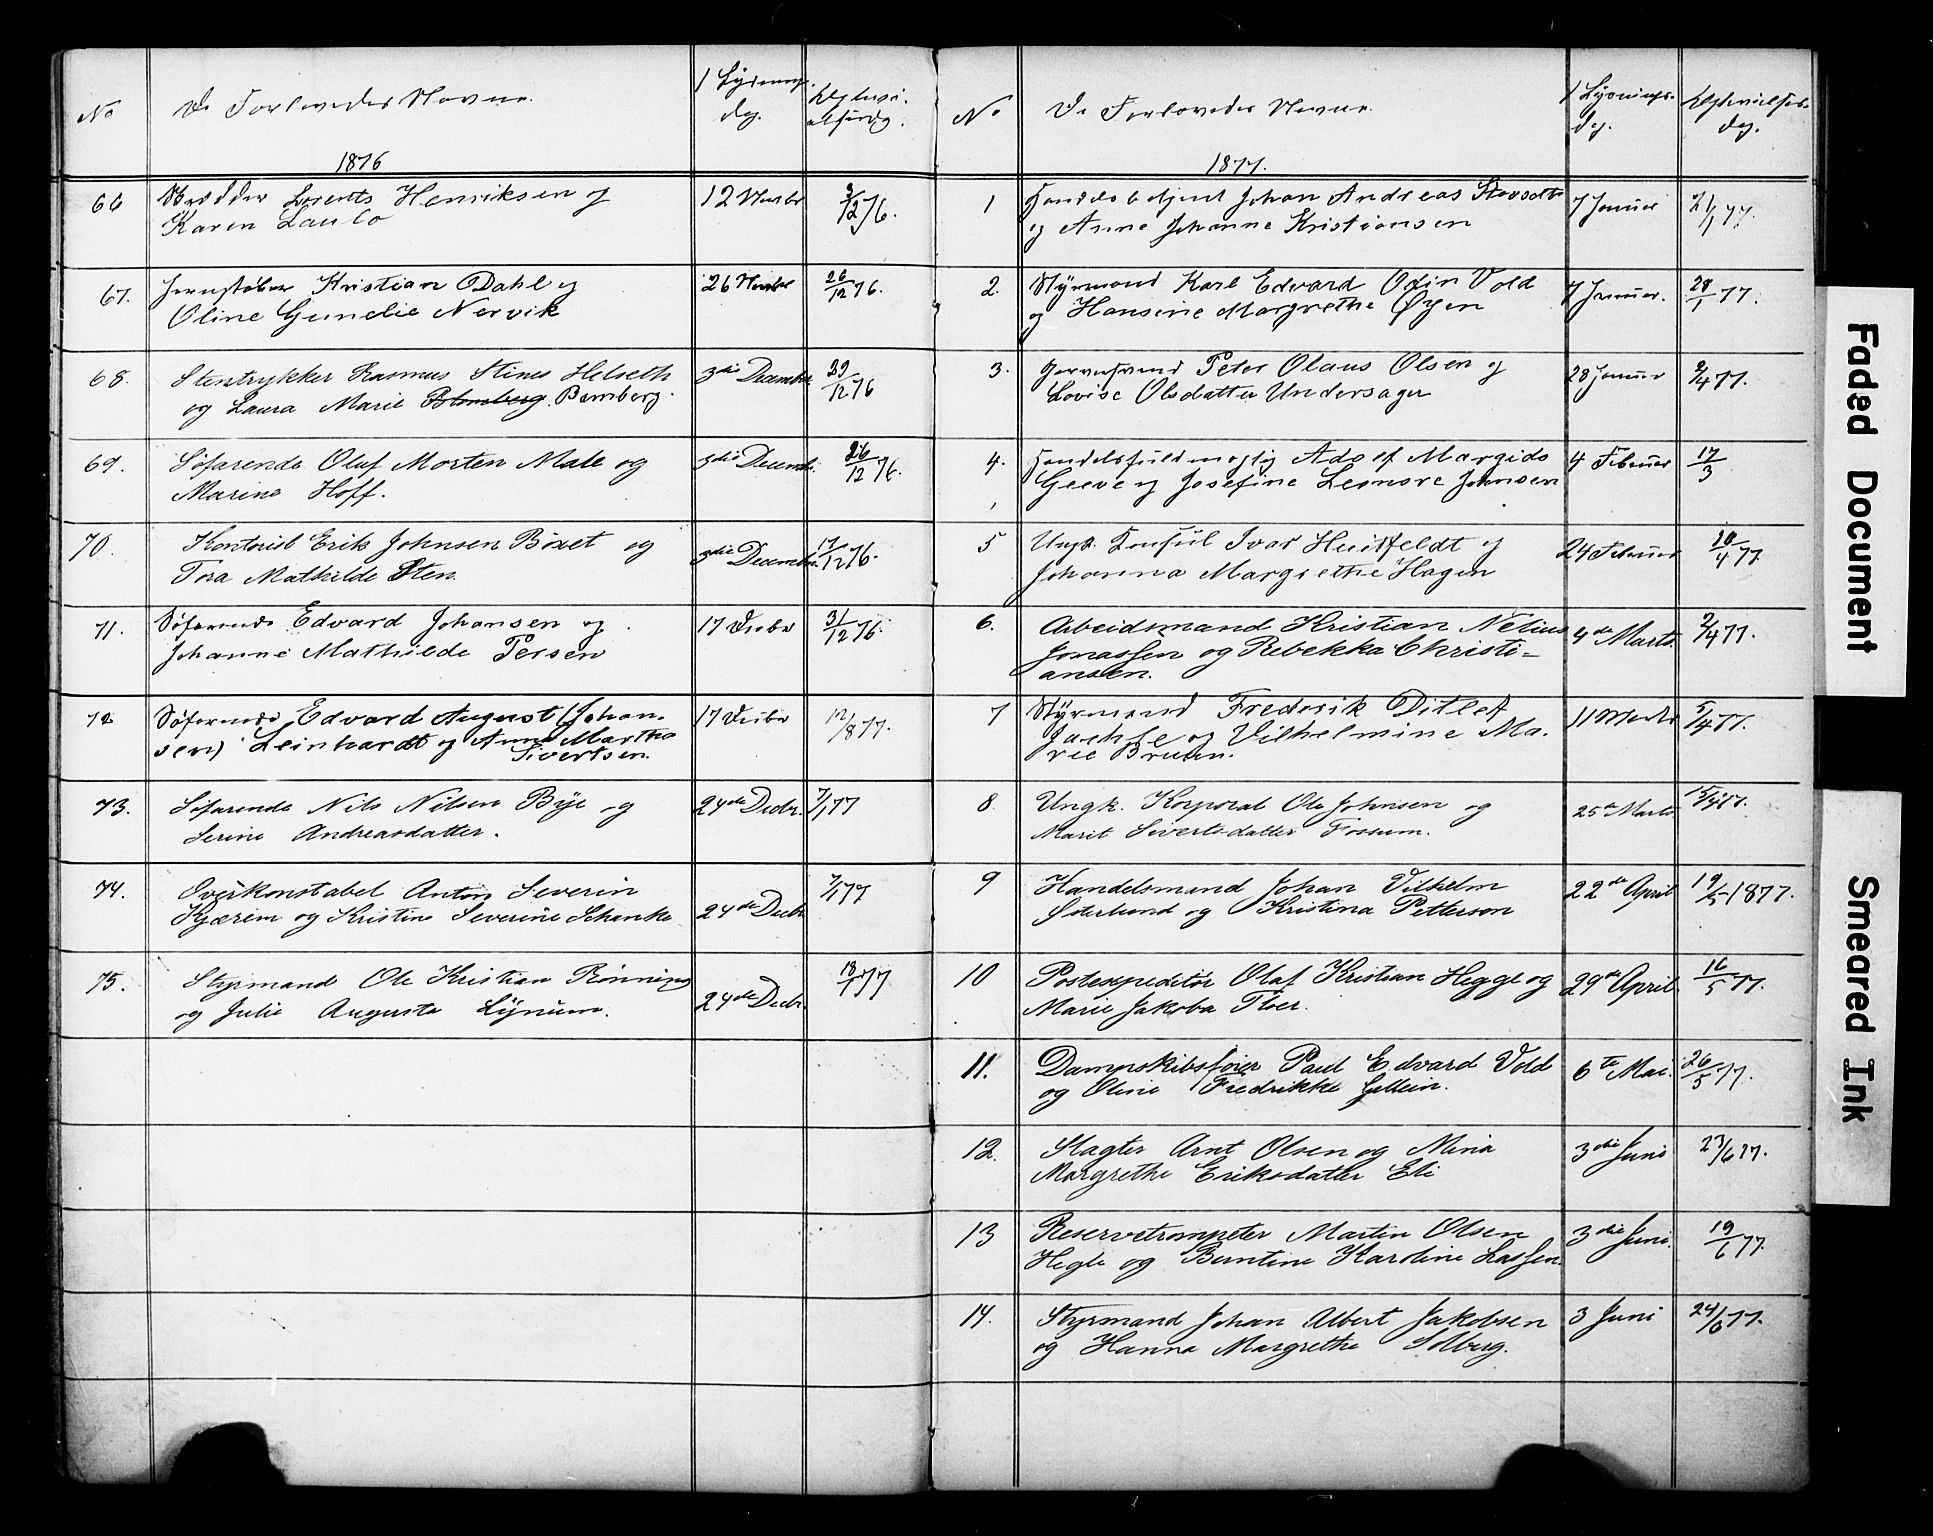 No
De Forlovedes Navne.
1 Lysnings
dag.
1876
66
Lorents Henriksen og
Karen Laulo
12 Novbr
3/12 76.
67.
Jernstøber Kristian Dahl og
Oline Gunelie Nervik
26 Novbr
26/12 76.
68.
Stentrykker Rasmus Stines Helseth
og Laura Marie Bamberg.
3die December
29/12 76
69.
Søfarende Oluf Morten Male og
Marine Hoff.
3die Decemb.
26/12 76.
70.
Kontorist Erik Johnsen Boxet og
Tora Mathilde Sten.
3die Decembr.
17/12 76.
71.
Søfarende Edvard Johansen og
Johanne Mathilde Persen
17 Decbr
31/12 76.
72
Søfarende Edvard August (Johan-
sen) Leinhardt og Anne Martha
Sivertsen.
17 Decbr
12/8 77.
73.
Søfarende Nils Nilsen Bye og
Serine Andreasdatter.
24de Decbr.
7/1 77
74.
Overkonstabel Anton Severin
Kjærem og Kristine Severine Schanke
24de Decbr
7/1 77
75.
Styrmand Ole Kristian Rønning
og Julie Augusta Lynum.
24de Decbr.
18/1 77
No
De Forlovedes Navne.
1 Lysnings-
dag.
Vielses-
dag.
1877.
1
Handelsbetjent Johan Andreas
og Anne Johanne Kristiansen
7 Januar
21/1 77.
2.
Styrmand Karl Edvard Odin Vold
og Hansine Margrethe Øyen
7 Januar.
28/1 77.
3.
Peter Olaus Olsen og
Lovise Olsdatter Undersager
28 Januar
2/4 77.
4.
Handelsfuldmægtig Adolf Margido
Greve og Josefine Leonore Johnsen
4 Februar
17/3
5
Ungk. Konsul Ivar Huitfeldt og
Johanna Margrethe Hagen
24 Februar
10/4 77
6.
Arbeidsmand Kristian Nelius
Jonassen og Rebekka Christi=
ansen.
4de Marts.
2/4 77.
7
Styrmand Frederik Ditlef
og Vilhelmine Ma-
rie Bruun.
11 Marts
5/4 77.
8.
Ungk. Korporal Ole Johnsen og
Marit Sivertsdatter Fossum.
25de Marts
15/4 77.
9
Handelsmand Johan Vilhelm
Østerlund og Kristina Petterson
22de April
19/5 1877.
10
Postexpeditør Olaf Kristian Hegge og
Marie Jakoba Floer.
29de April
16/5 77.
11.
Dampskibsfører Paul Edvard Vold
og Oline Fredrikke Gellein.
6te Mai.
26/5 77.
12.
Slagter Arnt Olsen og Mina
Margrethe Eriksdatter Eli
3die Juni
23/6 77.
13
Reservetrompeter Martin Olsen
Hegle og Berntine Karoline Lassen.
3die Juni.
19/6 77.
14.
Styrmand Johan Albert Jakobsen
og Hanna Margrethe Solberg.
3 Juni
24/6 77.
Faded Document
Smeared Ink